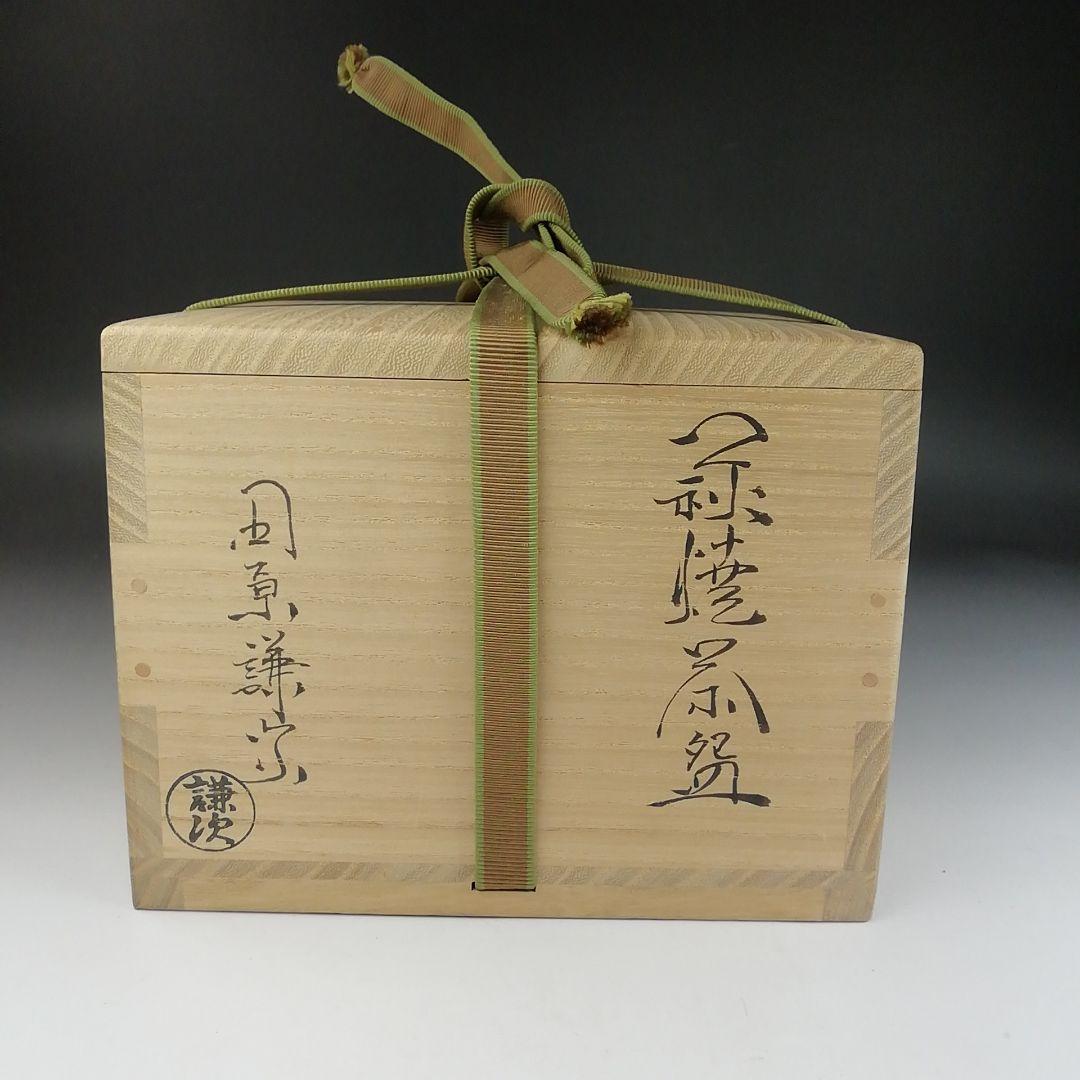 萩焼茶盌
田原謙次
謙次